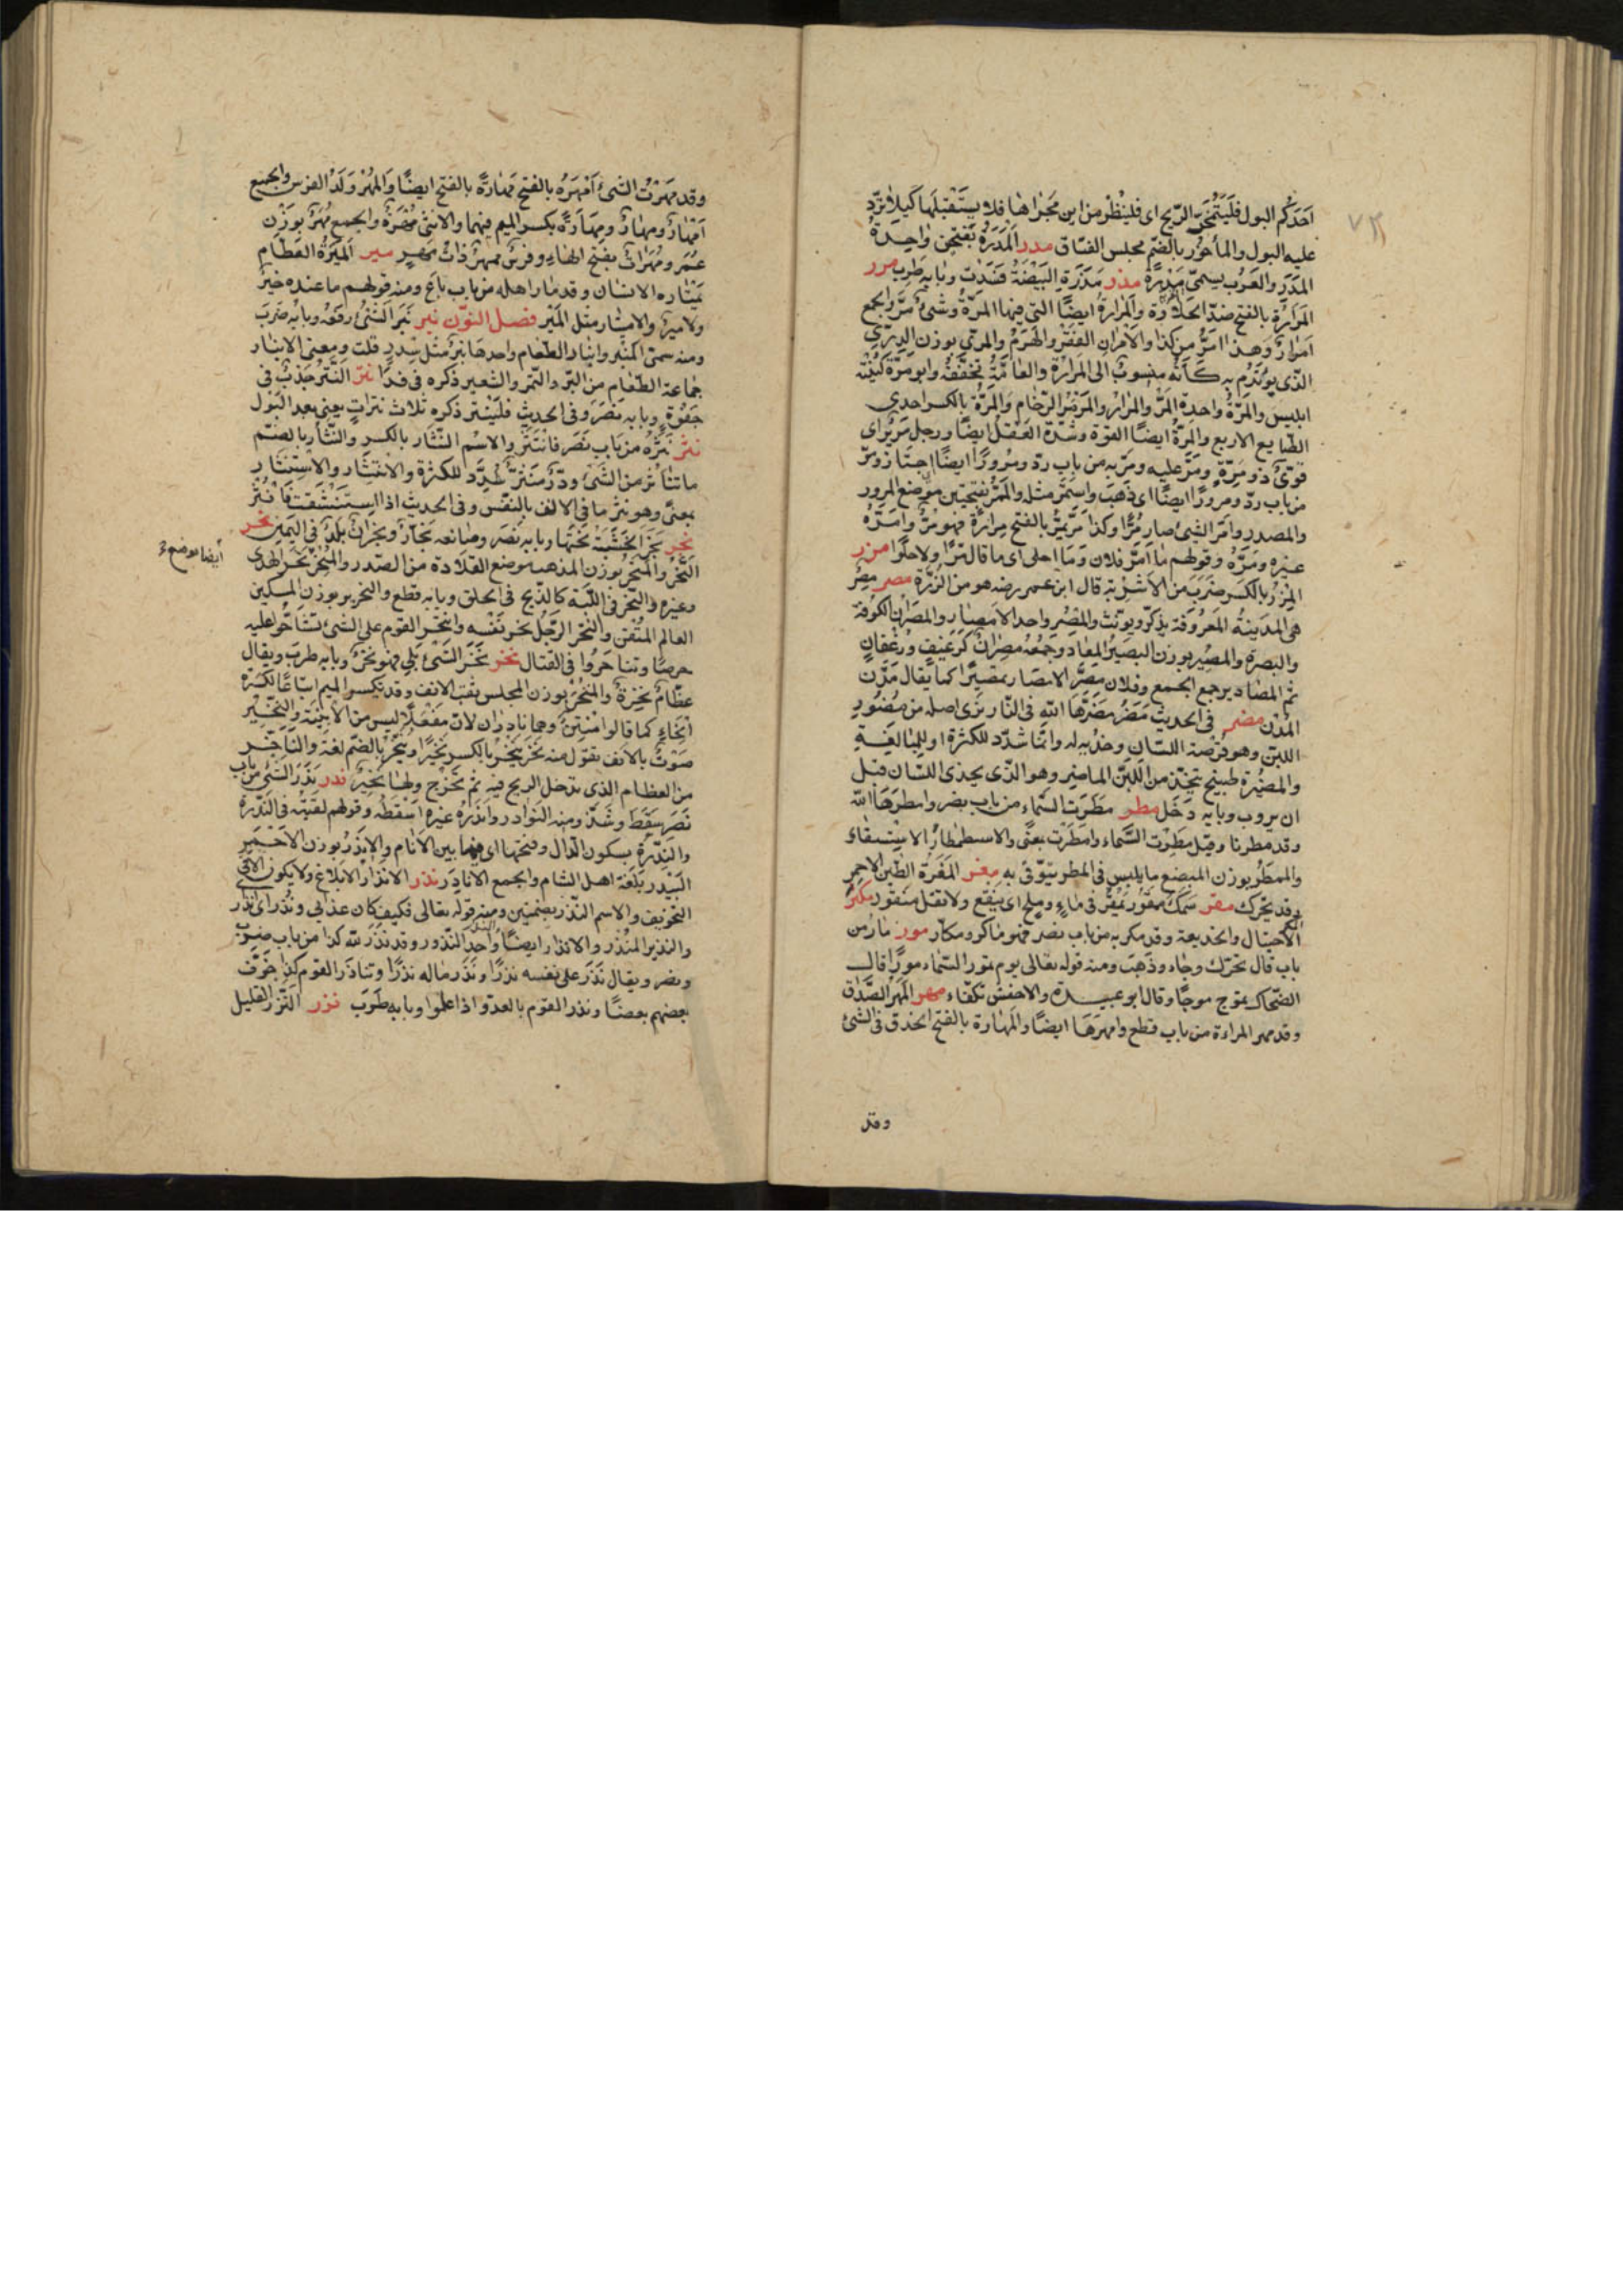 احدكم البول فليتمخر الريح اى فلينظر من اين مجراها فلا يستقبلها كيلا تردّ
عليه البول والماخور بالضم مجلس الفسّاق مدر المَدَرَة بفتحتين واحدة
المدر والعرب يسمى مَدَرَة مذر مَذِرَت البيضة فسدت وبابه طرب مرر
المرارة بالفتح ضدّ الحلاوة والمرارة ايضًا التى فيها المِرّة وشئ مرّ والجمع
امرار وهذا امرّ من كذا والامران الفقر والهرم والمرّى بوزن الدرّى
الذى يؤتدم به كأنه منسوب الى المرارة والعامّة تخففه وابو مرّة كنيته
ابليس والمرّة واحدة المرّ والمرار والمرمر الرخام والمِرّة بالكسر احدى
الطبايع الاربع والمرّة ايضًا القوة وشدّة العقل ايضًا ورجل مرير اى
قوىّ ذو مِرّة ومرّ عليه ومرّ به من باب ردّ ومرورًا ايضًا اجتاز ومرّ
من باب ردّ ومرورًا ايضًا اى ذهب واستمرّ مثله والممرّ بفتحتين موضع المرور
والمصدر وامرّ الشئ صار مُرًّا وكذا مرّ يمرّ بالفتح مرارة فهو مرّ وامرّه
غيره ومرّره وقولهم ما امرّ فلان وما احلى اى ما قال مُرًّا ولا حلوًا مزر
المِزر بالكسر ضرب من الاشربة قال ابن عمر رضه هو من الذرة مصر مصر
هى المدينة المعروفة يذكّر ويؤنث والمصر واحد الامصار والمصران الكوفة
والبصرة والمصير بوزن البصير المعاد وجمعه مصران كرغيف ورغفان
ثم المصادير جمع الجمع وفلان مصّر الامصار تمصيرًا كما يقال مدّن
المدن مضر فى الحديث مضر مضّرها الله فى النار نرى اصله من مضور
اللبن وهو قرصه اللسان وحذيه له وانما شدّد للكثرة او للمبالغة
والمضيرة طبيخ يتخذ من اللبن الماضر وهو الذى يحذى اللسان قبل
ان يروب وبابه دخل مطر مطرت السماء من باب نصر وامطرها الله
وقد مطرنا وقيل مطرت السماء وامطرت بمعنًى والاستمطار الاستسقاء
والممطر بوزن المبضع ما يلبس فى المطر يتوقّى به مغر المغرة الطين الاحمر
وقد يحرّك مقر سمك ممقور يمقر فى ماء وملح اى ينقع ولا تقل منقور مكر المكر
الاحتيال والخديعة وقد مكر به من باب نصر فهو ماكر ومكّار مور مار من
باب قال تحرّك وجاء وذهب ومنه قوله تعالى يوم تمور السماء مورًا قال
الضحاك تموج موجًا وقال ابو عبيدة والاخفش تكفّاء مهر المَهر الصداق
وقد مهر المراءة من باب قطع وامهرها ايضًا والمهارة بالفتح الحذق فى الشئ
وقد
وقد مهرت الشئ امهره بالفتح مهارة بالفتح ايضًا والمهر ولد الفرس والجمع
امهار ومهار ومهارة بكسر الميم فيهما والانثى مهرة والجمع مُهَر بوزن
عُمَر ومهرات بفتح الهاء وفرس ممهر ذات مهر مير الميرة الطعام
يمتاره الانسان وقد مار اهله من باب باع ومنه قولهم ما عنده خير
ولا مير والامتيار مثل المير فصل النون نبر نبر الشئ رفعه وبابه ضرب
ومنه سمى المنبر وانبار الطعام واحدها نبر مثل سدر قلت ومعنى الانبار
جماعة الطعام من البرّ والتمر والشعير ذكره فى فدًا نتر النتر جذب فى
جفوة وبابه نصر وفى الحديث فلينتر ذكره ثلاث نترات يعنى بعد البول
نثر نثره من باب نصر فانتثر والاسم النثار بالكسر والنثار بالضم
ما تناثر من الشئ ودرّ منثّر شدّد للكثرة والانتثار والاستنثار
بمعنًى وهو نثر ما فى الانف بالنفس وفى الحديث اذا استنشقت فانثر
نجر نجر الخشبة نحتها وبابه نصر وصانعه نجّار ونجران بلد فى اليمن نحر
النحر والمنحر بوزن المذهب موضع القلادة من الصدر والمنحر نحر الهدى
ايضا موضع
وغيره والنحر فى اللبّة كالذبح فى الحلق وبابه قطع والنحرير بوزن المسكين
العالم المتقن وانتحر الرجل نحر نفسه وانتحر القوم على الشئ تشاحّوا عليه
حرصًا وتناحروا فى القتال نخر نخر الشئ بلى فهو نخر وبابه طرب ويقال
عظام نخرة والمنخر بوزن المجلس ثقب الانف وقد تكسر الميم اتباعًا لكسرة
الخاء كما قالوا منتن وهما نادران لان مفعلًا ليس من الابنية والنخير
صوت بالانف تقول منه نخر ينخر بالكسر نخيرًا وينخر بالضم لغة والناخر
من العظام الذى تدخل الريح فيه ثم تخرج ولها نخير ندر ندر الشئ من باب
نصر سقط وشذّ ومنه النوادر واندره غيره اسقطه وقولهم لقيته فى الندرة
والندرة بسكون الدال وفتحها اى فيما بين الايام والاندر بوزن الاحمر
البيدر بلغة اهل الشام والجمع الانادر نذر الانذار الابلاغ ولا يكون الا فى
التخويف والاسم النذر بضمتين ومنه قوله تعالى فكيف كان عذابى ونذر اى انذارى
والنذير المنذر والانذار ايضًا والنذر واحد النذور وقد نذر لله كذا من باب ضرب
ونصر ويقال نذر على نفسه نذرًا ونذر ماله نذرًا وتناذر القوم كذا خوّف
بعضهم بعضًا ونذر القوم بالعدوّ اذا علموا وبابه طرب نزر النزر القليل